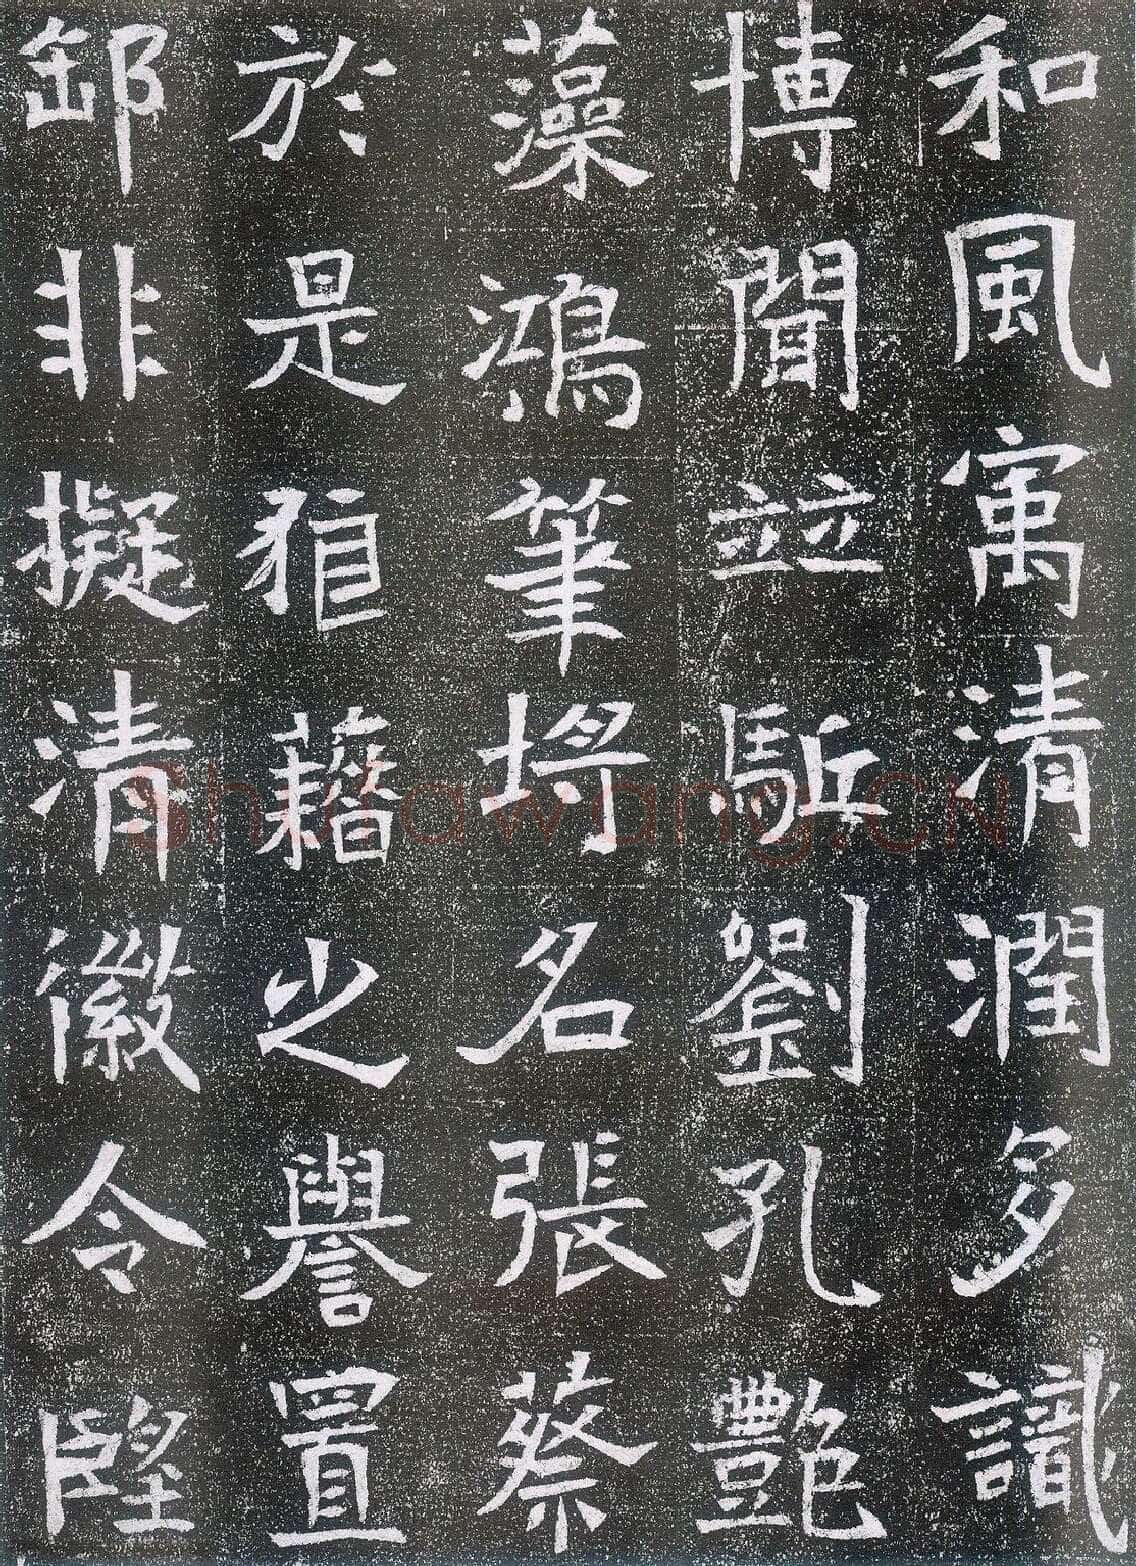 和風寓清潤多識
博聞竝駈劉孔艷
藻鴻筆埒名張蔡
於是狼藉之譽置
郵非擬清徽令朢
Shufawang.CN